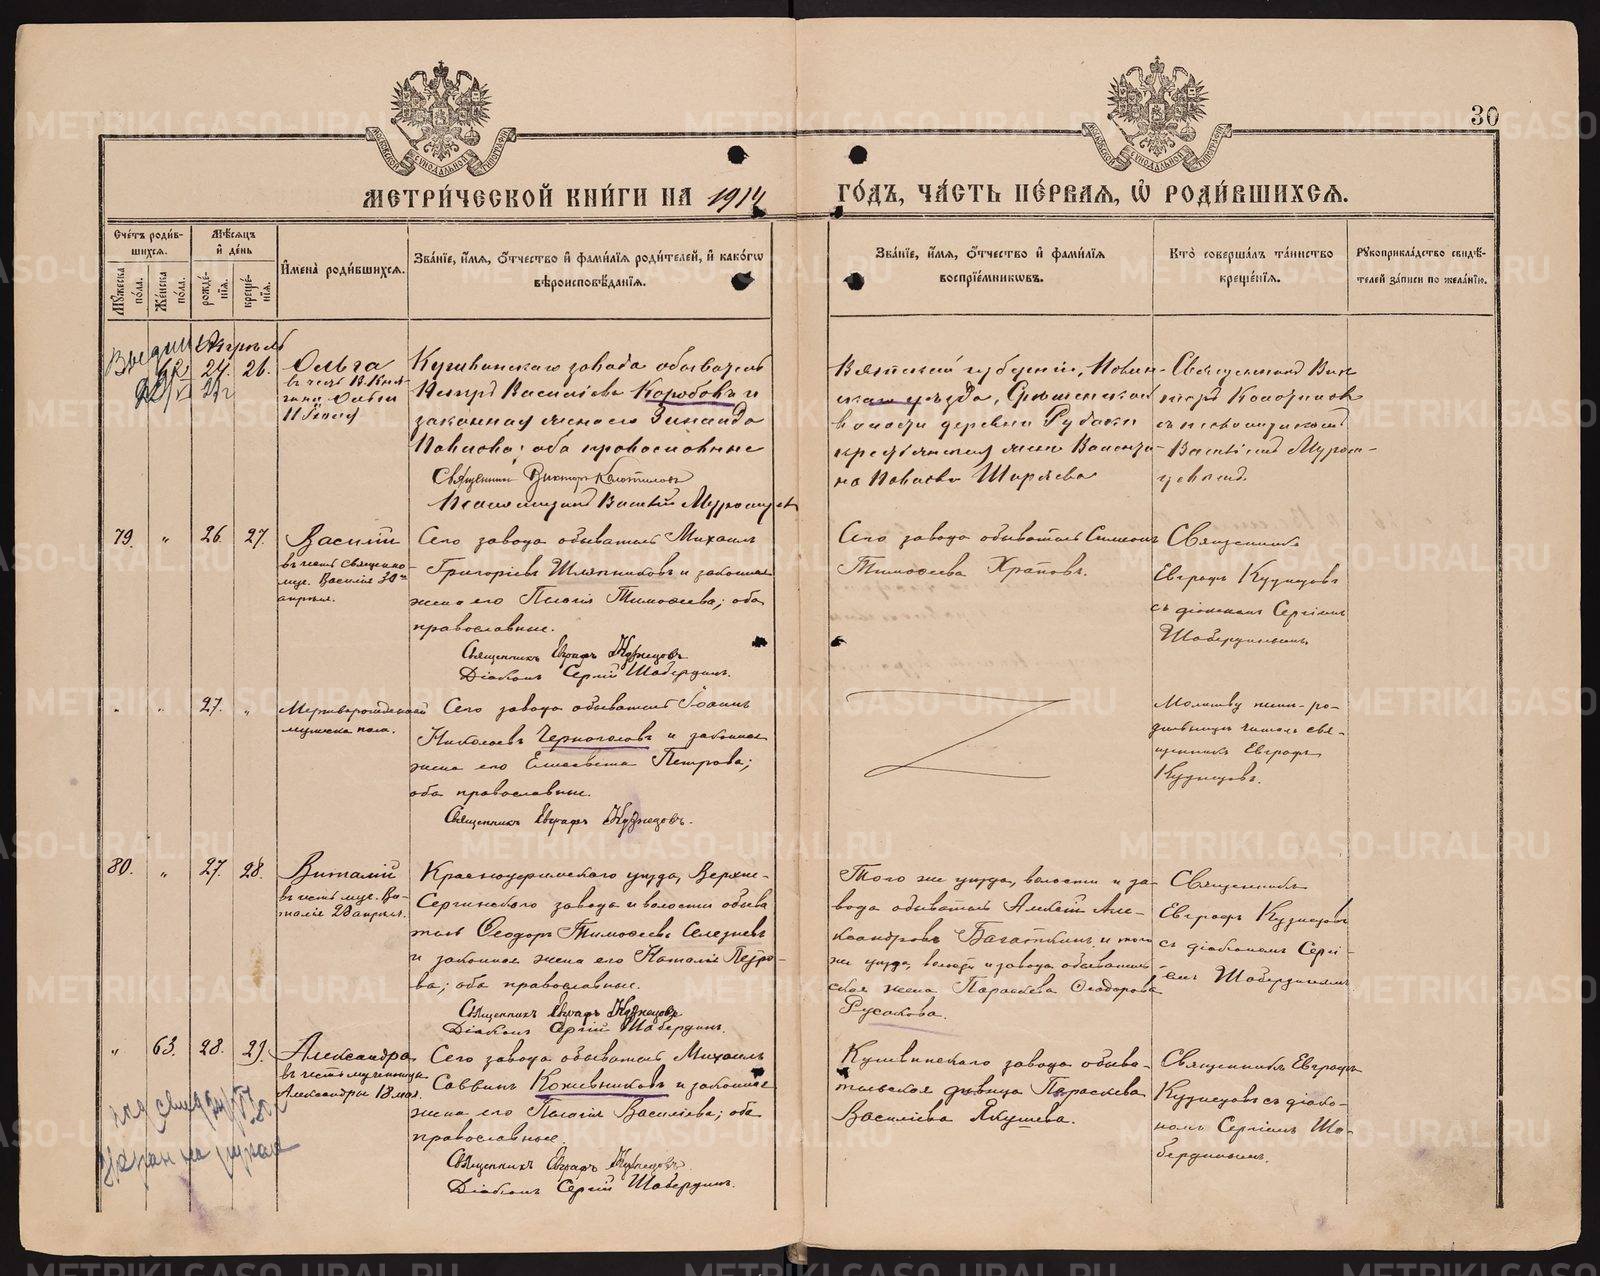 30
МЕТРИ́ЧЕСКОЙ КНИ́ГИ НА 1914 ГО́ДЪ, ЧА́СТЬ ПЕ́РВАЯ, Ѡ҆ РОДИ́ВШИХСЯ.
Сче́тъ роди́в-
шихся.
Мꙋ́жеска по́ла.
Же́нска по́ла.
Мѣ́сяцъ
и҆ де́нь
рожде́-
нїя.
креще́-
нїя.
И҆мена̀ роди́вшихся.
Зва́нїе, и҆́мя, ѻ҆́тчество и҆ фами́лїя роди́телей, и҆ како́гѡ
вѣроисповѣ́данїя.
Зва́нїе, и҆́мя, ѻ҆́тчество и҆ фами́лїя
воспрїе́мникѡвъ.
Кто̀ соверша́лъ та́инство
креще́нїя.
Рꙋкоприкла́дство свидѣ́-
телей за́писи по жела́нїю.
Апрѣль
62 24 26. Ольга
въ честь В. Кня-
гини Ольги
11 Іюля
Кушвинскаго завода обыватель
Петръ Васильевъ Коробовъ и
законная жена его Зинаида
Павлова; оба православные
Священникъ Викторъ
Псаломщикъ Василій
Вятской губерніи,
уѣзда,
волости деревни
крестьянская жена
на Павлова Ширяева
Священникъ Вик-
торъ
съ псаломщикомъ
Василіемъ
79. " 26. 27. Василій
въ честь священно-
муч. Василія 30го
апрѣля.
Сего завода обыватель Михаилъ
Григоріевъ Шляпниковъ и законная
жена его Пелагія Тимоѳеева; оба
православные.
Священникъ Евграфъ Кузнецовъ
Діаконъ Сергій Шабердинъ.
Сего завода обыватель Симеонъ
Тимоѳеевъ Храповъ.
Священникъ
Евграфъ Кузнецовъ
съ діакономъ Сергіемъ
Шабердинымъ.
" " 27. " Мертворожденный
мужска пола.
Сего завода обыватель Іоаннъ
Николаевъ Черноголовъ и законная
жена его Елисавета Петрова;
оба православные.
Священникъ Евграфъ Кузнецовъ.
Молитву
читалъ свя-
щенникъ Евграфъ
Кузнецовъ.
80. " 27. 28. Виталій
въ честь муч. Ви-
талія 28 апрѣля.
Красноуфимскаго уѣзда, Верхне-
Сергинскаго завода и волости обыва
тель Ѳеодоръ Тимоѳеевъ Селезневъ
и законная жена его Наталія Петро-
ва; оба православные.
Священникъ Евграфъ Кузнецовъ
Діаконъ Сергій Шабердинъ.
Того же уѣзда, волости и за-
вода обыватель Алексій Але-
ксандровъ и того
же уѣзда, волости и завода обыватель-
ская жена Параскева Ѳеодорова
Русакова.
Священникъ
Евграфъ Кузнецовъ
съ діакономъ Сергі-
емъ Шабердинымъ
" 63. 28. 29. Александра
въ честь мученицы
Александры 18 мая.
Сего завода обыватель Михаилъ
Саввинъ Кожевниковъ и законная
жена его Пелагія Василіева; оба
православные.
Священникъ Евграфъ Кузнецовъ.
Діаконъ Сергій Шабердинъ.
Кушвинскаго завода обыва-
тельская дѣвица Параскева
Василіева Якушева.
Священникъ Евграфъ
Кузнецовъ съ діако-
номъ Сергіемъ Ша-
бердинымъ.
METRIKI.GASO-URAL.RU